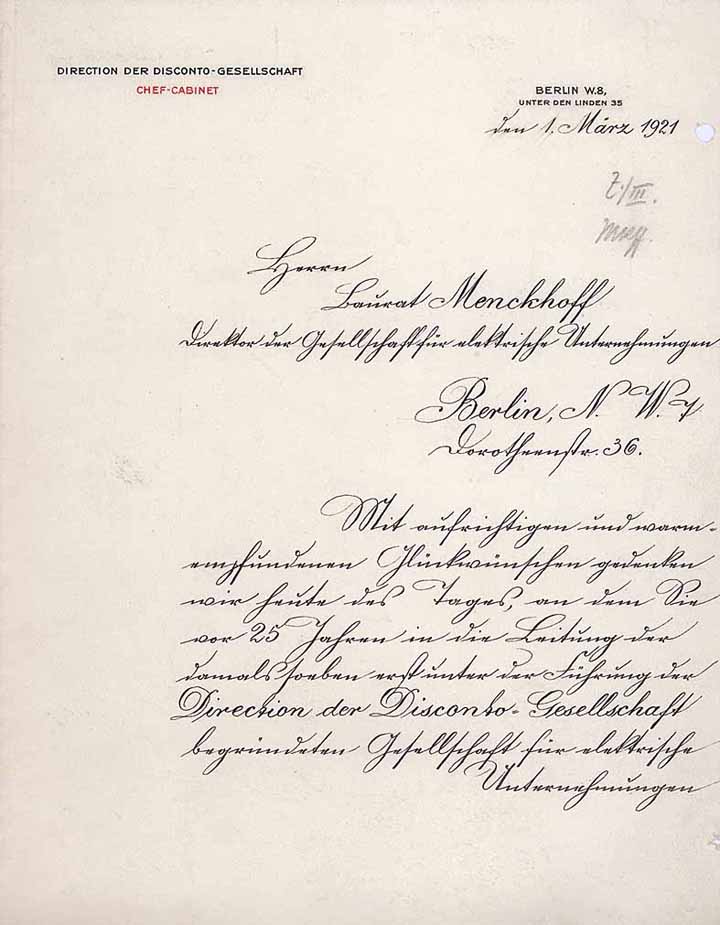 DIRECTION DER DISCONTO-GESELLSCHAFT
CHEF-CABINET
BERLIN W.8,
UNTER DEN LINDEN 35
den 1. März 1921
Herrn
Baurat Menckhoff
Direktor der Gesellschaft für elektrische Unternehmungen
Berlin, N. W. 7
Dorotheenstr. 36.
Mit aufrichtigen und warm-
empfundenen Glückwünschen gedenken
wir heute des Tages, an dem Sie
vor 25 Jahren in die Leitung der
damals soeben erst unter der Führung der
Direction der Disconto-Gesellschaft
begründeten Gesellschaft für elektrische
Unternehmungen